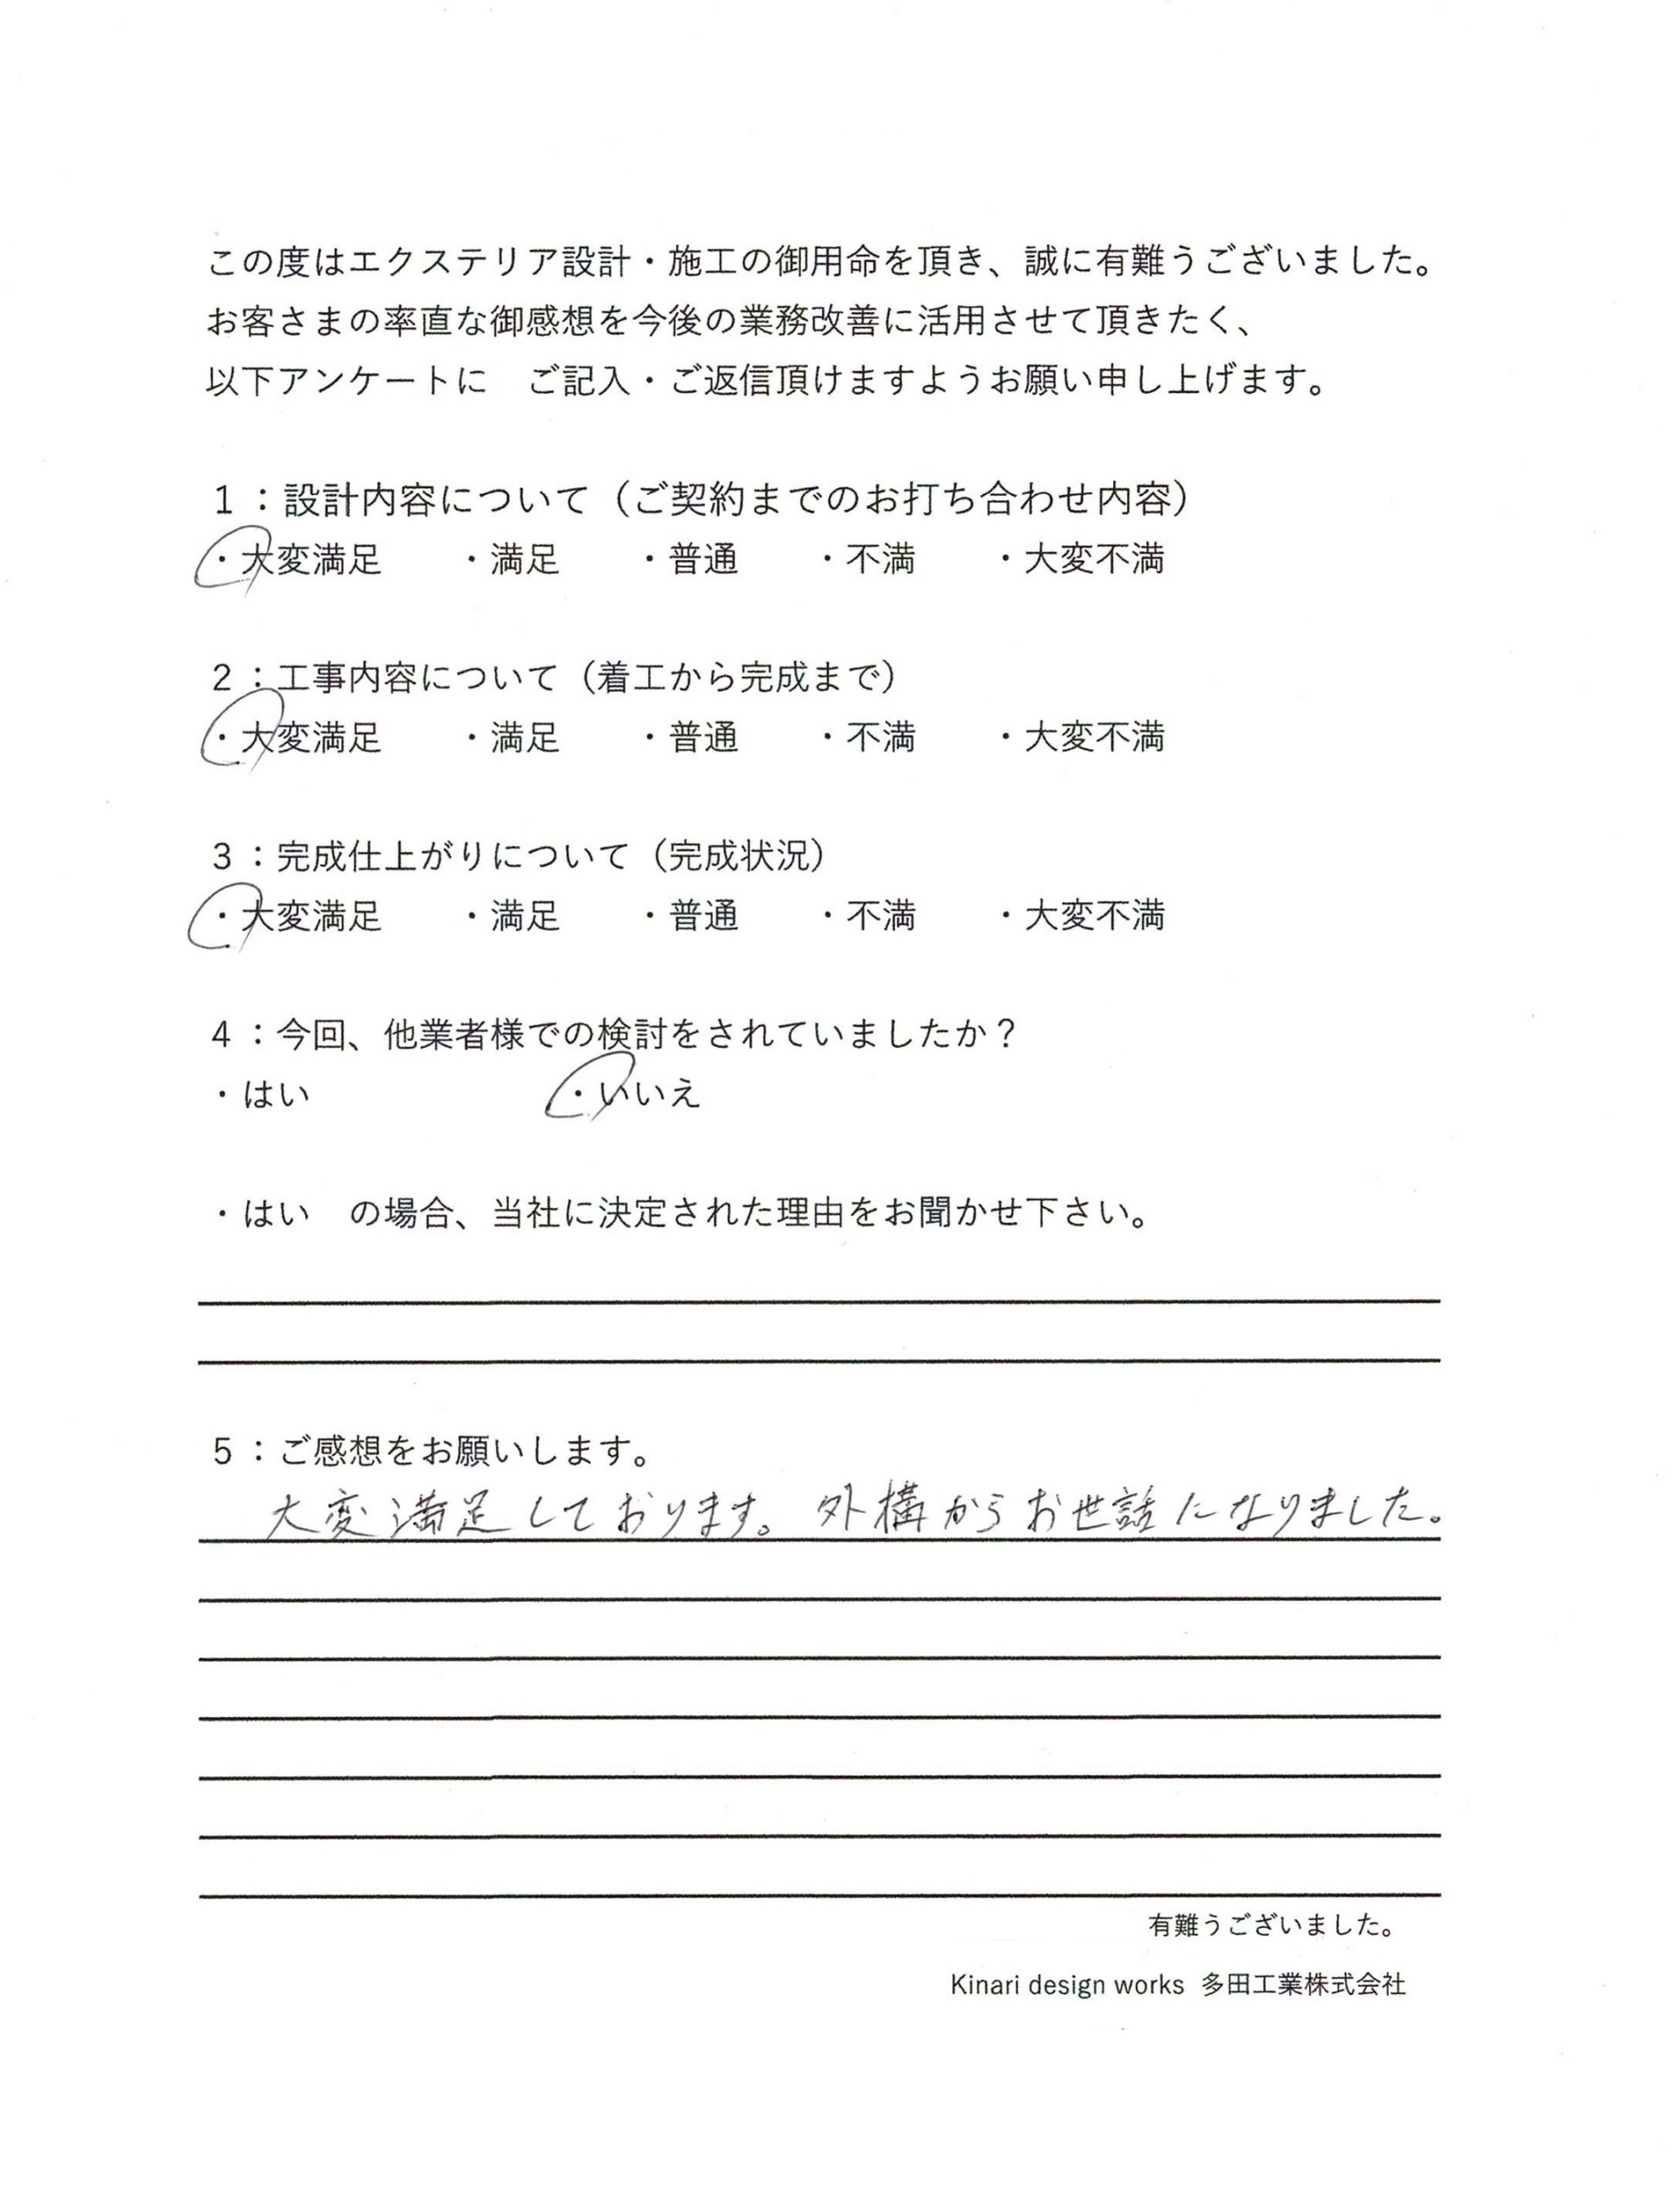 この度はエクステリア設計・施工の御用命を頂き、誠に有難うございました。
お客さまの率直な御感想を今後の業務改善に活用させて頂きたく、
以下アンケートに　ご記入・ご返信頂けますようお願い申し上げます。
1：設計内容について（ご契約までのお打ち合わせ内容）
・大変満足　　・満足　　・普通　　・不満　　・大変不満
2：工事内容について（着工から完成まで）
・大変満足　　・満足　　・普通　　・不満　　・大変不満
3：完成仕上がりについて（完成状況）
・大変満足　　・満足　　・普通　　・不満　　・大変不満
4：今回、他業者様での検討をされていましたか？
・はい　　　　　　　・いいえ
・はい　の場合、当社に決定された理由をお聞かせ下さい。
5：ご感想をお願いします。
大変満足しております。外構からお世話になりました。
有難うございました。
Kinari design works 多田工業株式会社